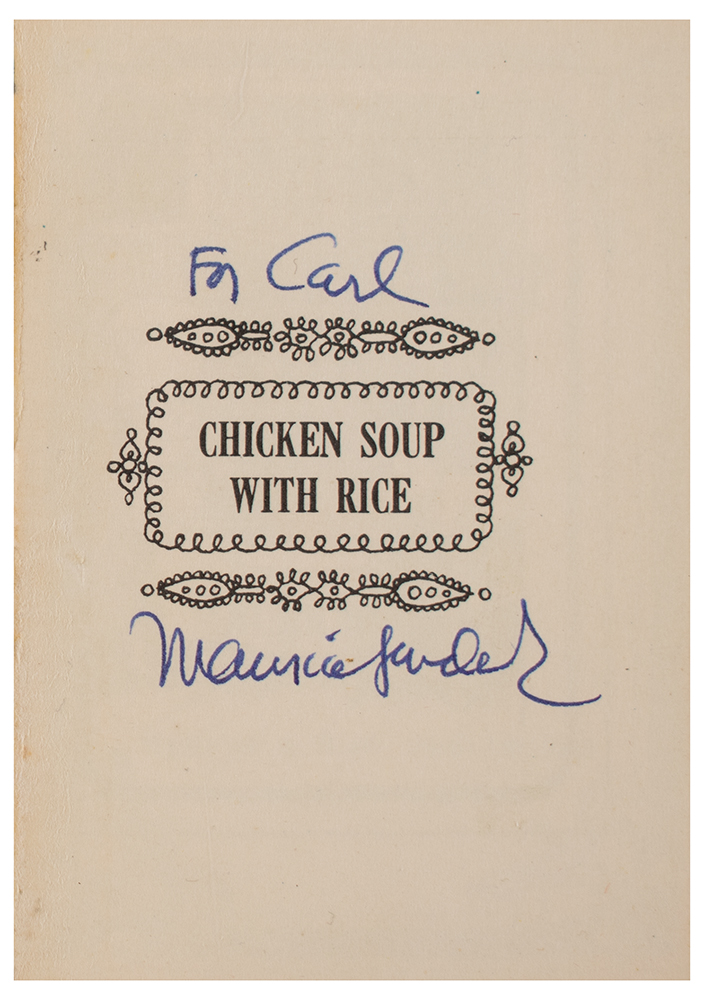 For Carl
CHICKEN SOUP
WITH RICE
Maurice Sendak